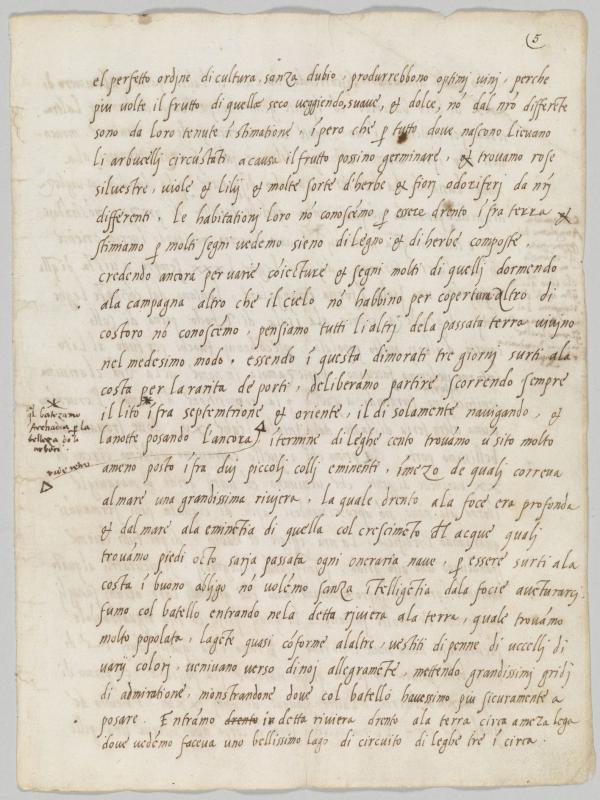 5
el perfetto ordine di cultura, sanza dubio, produrrebbono optimj vinj, perche
piu volte il frutto di quelle seco veggiendo, suave, & dolce, nó dal nró differéte
sono da loro tenute í stimatione, ípero ché p tutto dove nascono lievano
li arbucellj circústáti a causa il frutto possino germinare, & trovamo rose
silvestre, viole & lilij & molte sorte d'herbe & fiorj odoriferj da nrj
differenti. le habitationj loro nó conoscémo p essere drento ífra terra &
stimiamo p molti segni vedemo sieno di légno & di herbé composte,
credendo ancora per varie cóiecture & segni molti di quellj dormendo
ala campagna altro che il cielo nó habbino per copertura. Altro di
costoro nó conoscémo, pensiamo tutti li altrj dela passata terra vivino
nel medesimo modo. essendo í questa dimorati tre giornj surti ala
costa per la rarita de porti, deliberámo partire scorrendo sempre
il lito ífra septemtrione & oriente, il dí solamente navigando, &
* q̃l batezamo
Archadia p la
bellezza de la
arbori
lanotte posando l'ancora, í termine di leghe cento trovámo ú sito molto
vide retro
ameno posto ífra dui piccolj collj eminénti, í mezo de qualj correva
al mare una grandissima riviera, la quale drento ala foce era profonda
& dal mare ala eminétia di quella col crescimeto dll acque qualj
trovámo piedi octo saria passata ogni oneraria nave, p essere surti ala
costa í buono obligo nó volémo sanza ítelligétia dala focie avéturarcj.
fumo col batello entrando nela detta riviera ala terra, quale trovámo
molto popolata, la géte quasi cóforme alaltre, vestiti di penne di uccellj di
varij colorj, venivano verso di noj allegraméte, mettendo grandissimj gridj
di admiratione, monstrandone dove col batello havessimo piu sicuramente a
posare. Entrámo drento in detta riviera drento ala terra circa a meza lega
dove vedémo faceva uno bellissimo lago di circuito di leghe tre í circa.